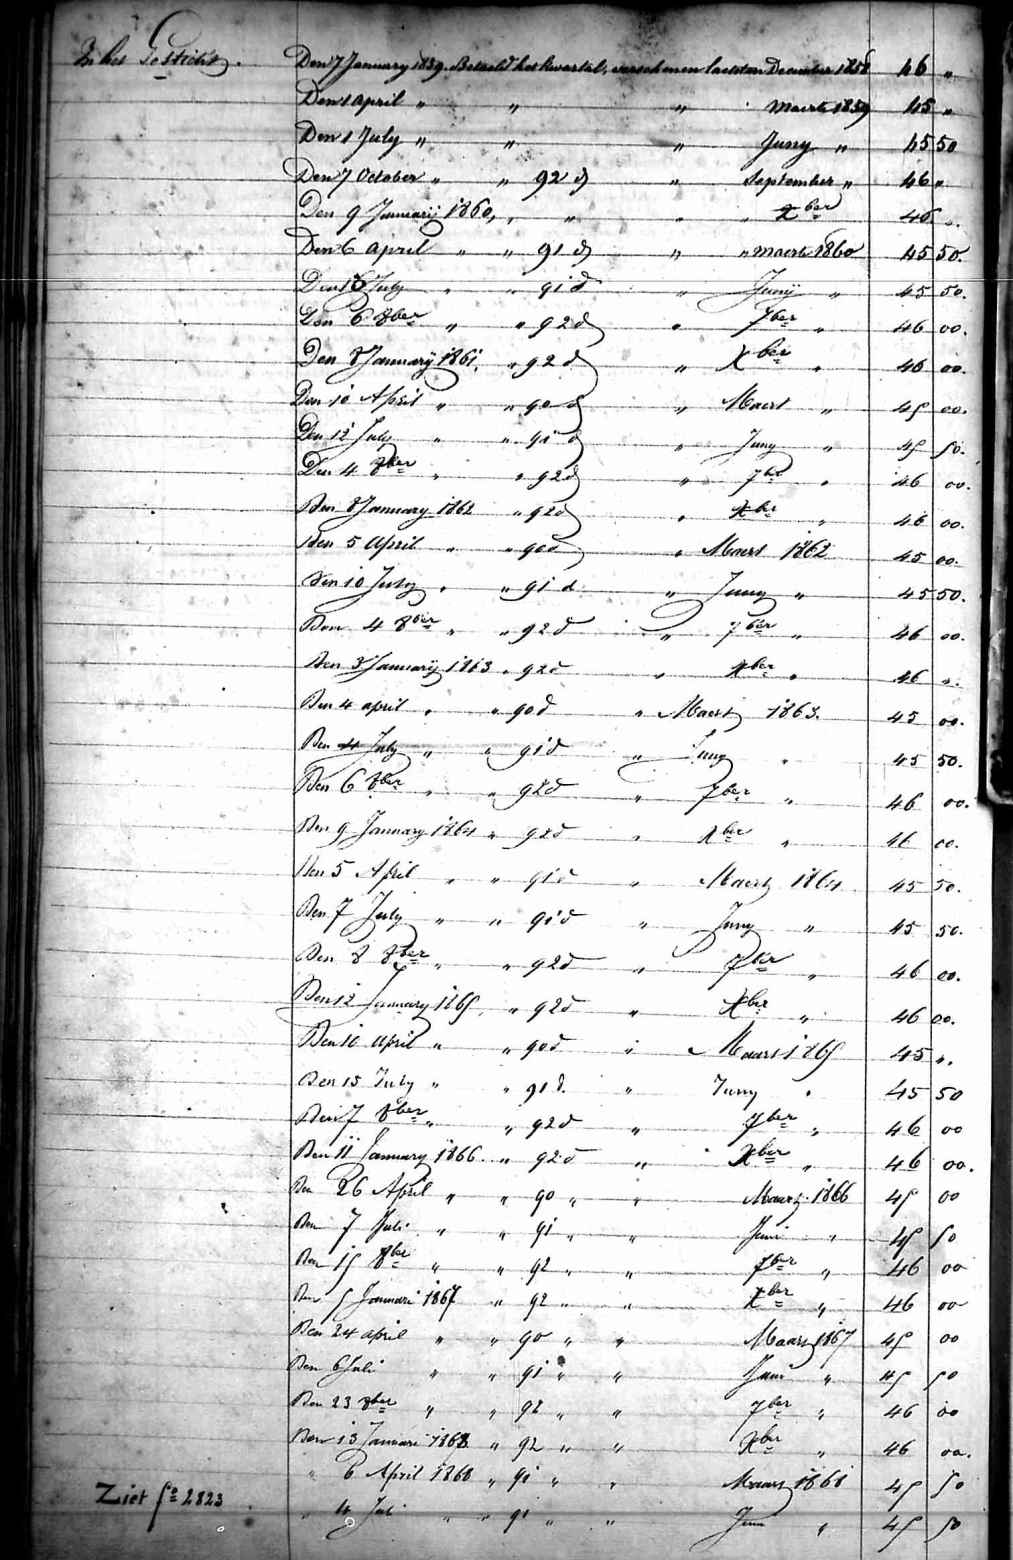 In het Gesticht.
Den 7 January 1859. Betaald het kwartal, verschenen laatsten December 1858 46 "
Den 1 April " " " Maert 1859 45 "
Den 1 July " " " Juny " 45 50
Den 7 October " " 92 d " September " 46 "
Den 9 Januarij 1860, " " " " Xber 46 ".
Den 6 April " " 91 d " " Maert 1860 45 50.
Den 18 July " " 91 d " Junij " 45 50.
Den 6 8ber " " 92 d " 7ber " 46 00.
Den 8 Januarij 1861, " 92 d " Xber " 46 00.
Den 10 April " " 90 d " Maert " 45 00.
Den 12 July " " 91 d " Juny " 45 50.
Den 4 8ber " " 92 d " 7ber " 46 00.
Den 8 January 1862 " 92 d " Xber " 46 00.
Den 5 April " " 90 d " Maert 1862 45 00.
Den 10 July " " 91 d " Juny " 45 50.
Den 4 8ber " " 92 d " 7ber " 46 00.
Den 3 Januarij 1863 " 92 d " Xber " 46 ".
Den 4 april " " 90 d " Maert 1863. 45 00.
Den 4 July " " 91 d " Juny " 45 50.
Den 6 8ber " " 92 d " 7ber " 46 00.
Den 9 January 1864 " 92 d " Xber " 46 00.
Den 5 April " " 91 d " Maert 1864 45 50.
Den 7 July " " 91 d " Juny " 45 50.
Den 8 8ber " " 92 d " 7ber " 46 00.
Den 12 January 1865, " 92 d " Xber " 46 00.
Den 10 April " " 90 d " Maert 1865 45 ".
Den 15 July " " 91 d. " Juny " 45 50
Den 7 8ber " " 92 d " 7ber " 46 00
Den 11 January 1866. " 92 d " Xber " 46 00.
Den 26 April " " 90 " " Maart 1866 45 00
Den 7 Juli " " 91 " " Juni " 45 50
Den 15 8ber " " 92 " " 7ber " 46 00
Den 5 Januari 1867 " 92 " " Xber " 46 00
Den 24 april " " 90 " " Maart 1867 45 00
Den 6 Juli " " 91 " " Juni " 45 50
Den 23 8ber " " 92 " " 7ber " 46 00
Den 13 Januari 1868 " 92 " " Xber " 46 00.
" 6 April 1868 " 91 " " Maart 1868 45 50
Ziet fo 2823
" 4 Juli " " 91 " " Juni " 45 50